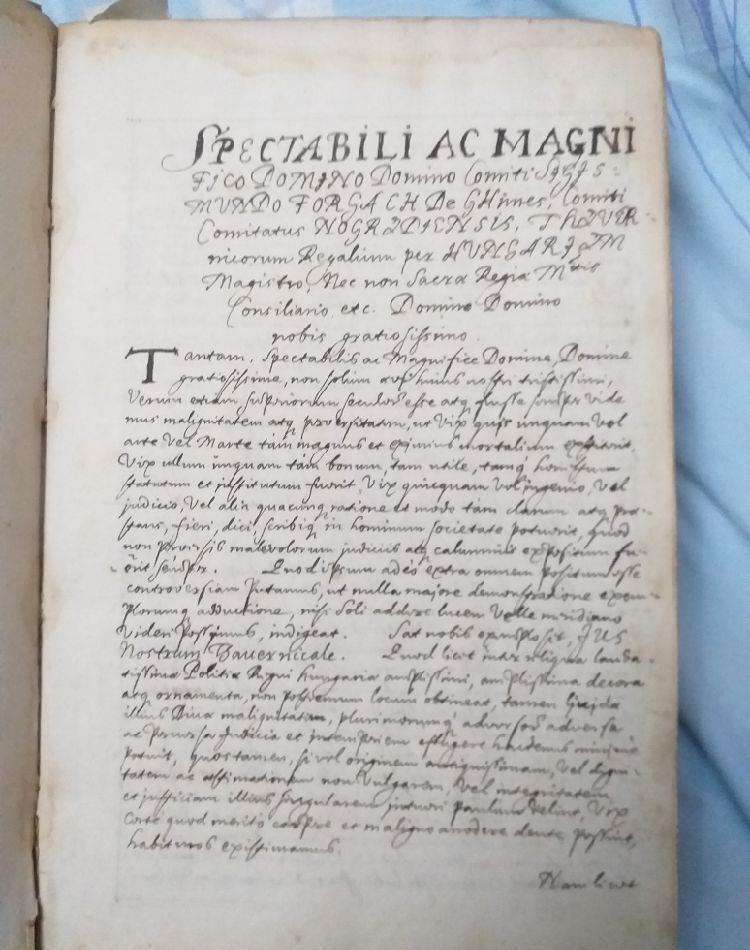 SPECTABILI AC MAGNI
FICO DOMINO Domino Comiti SIGIS-
MUNDO FORGACH De GHimes, Comiti
Comitatus NOGRADIENSIS, THAVER-
nicorum Regalium per HUNGARIAM
Magistro, Nec non Sacræ Regiæ Mttis
Consiliario etc. Domino Domino
nobis gratiosissimo.
Tantam, Spectabilis ac Magnifice Domine, Domine
gratiosissime, non solum nostri tristissimi,
Verum etiam superiorum seculorū esse atq fuisse semper vide
mus malignitatem atq perversitatem, ut Vix quis unquam Vel
arte Vel Marte tàm magnus et eximius mortalium extiterit,
Vix ullum ùnquam tàm bonum, tam utile, tamq honestum
statutum et institutum fuerit, Vix quicquam Vel ingenio, Vel
judicio, Vel aliâ quacunq ratione et modo tàm clarum atq præ-
stans, fieri, dici, scribiq in hominum societate potuerit, quod
non perversis malevolorum judiciis atq calumniis expositum fu-
erit semper. Quod ipsum adeò extra omnem positum esse
controversiam putamus, ut nulla majore demonstratione exem-
plorumq adductione, nisi Soli addere lucem Velle meridiano
Videri Possimus, indigeat. Sat nobis exemplo sit, JUS
Nostrum Tavernicale. Quod licet inter reliqua lauda-
tissimæ Politiæ Regni Hungariæ amplissimi, amplissima decora
atq ornamenta, non postremum locum obtineat, tamen
illius malignitatem, plurimorumq adversa
ac Perversa Judicia et effugere hactenus minimè
Potuit, quos tamen, si vel originem antiquissimam, Vel digni-
tatem ac æstimationem non Vulgarem, Vel integritatem
et justitiam illius singularem intueri paulum Velint, Vix
certè quod meritò carpere et maligno arrodere dente possint,
habituros existimamus.
Nam licet